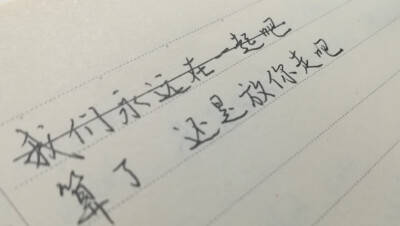 我们永远在一起吧
算了 还是放你走吧